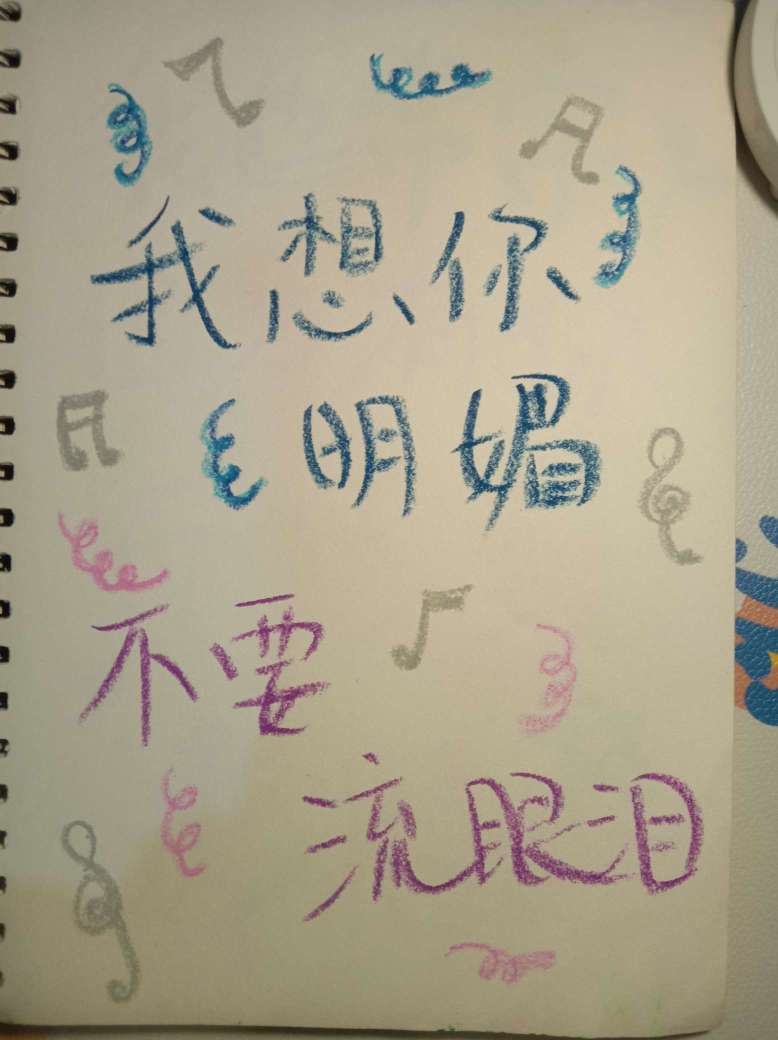 我想你
明媚
不要
流眼泪